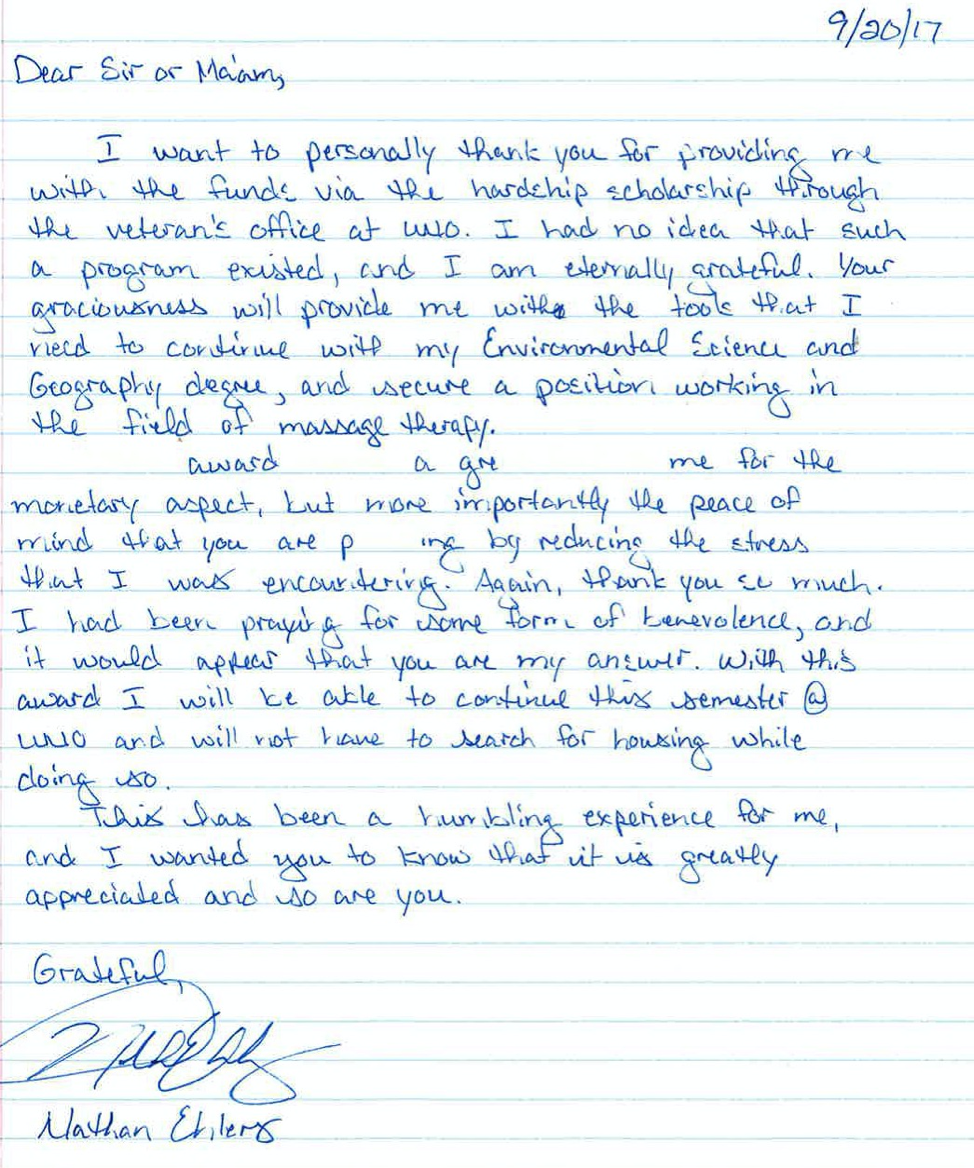 9/20/17
Dear Sir or Ma'am,
I want to personally thank you for providing me
with the funds via the hardship scholarship through
the veteran's office at UWO. I had no idea that such
a program existed, and I am eternally grateful. Your
graciousness will provide me with the tools that I
need to continue with my Environmental Science and
Geography degree, and secure a position working in
the field of massage therapy.
award a gre me for the
monetary aspect, but more importantly the peace of
mind that you are p ing by reducing the stress
that I was encountering. Again, thank you so much.
I had been praying for some form of benevolence, and
it would appear that you are my answer. With this
award I will be able to continue this semester @
UWO and will not have to search for housing while
doing so.
This has been a humbling experience for me,
and I wanted you to know that it is greatly
appreciated and so are you.
Grateful,
Nathan Ehlers